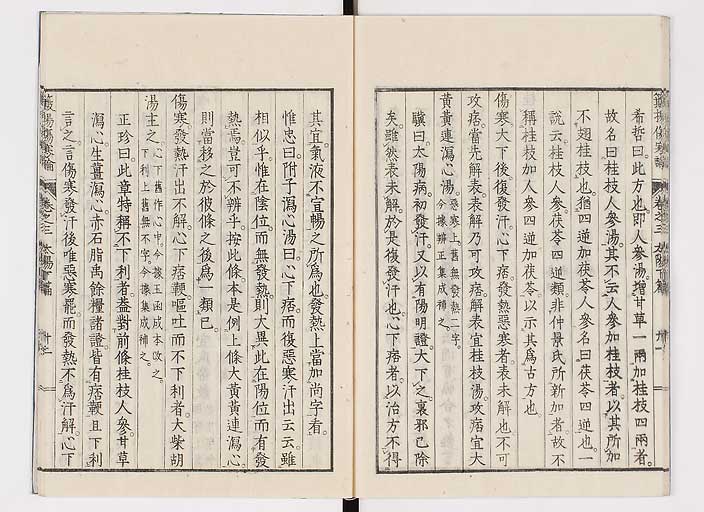 希哲曰此方也即人參湯增甘草一兩加桂枝四兩者
故名曰桂枝人參湯其不云人參加桂枝者以其所加
不翅桂枝也猶四逆加茯苓人參名曰茯苓四逆也一
說云桂枝人參茯苓四逆類非仲景氏所新加者故不
稱桂枝加人參四逆加茯苓以示其爲古方也
傷寒大下後復發汗心下痞發熱惡寒者表未解也不可
攻痞當先解表表解乃可攻痞解表宜桂枝湯攻痞宜大
黃黃連瀉心湯
惡寒上舊無發熱二字
今據辨正集成補之
驥曰太陽病初發汗又以有陽明證大下之裏邪已除
矣雖然表未解於是復發汗也心下痞者以治方不得
其宜氣液不宣暢之所爲也發熱上當加尚字看
惟忠曰附子瀉心湯曰心下痞而復惡寒汗出云云雖
相似乎惟在陰位而無發熱則大異此在陽位而有發
熱焉豈可不辨乎按此條本是例上條大黃黃連瀉心
則當移之於彼條之後爲一類已
傷寒發熱汗出不解心下痞鞕嘔吐而不下利者大柴胡
湯主之
心下舊作心中今據玉函成本改之
下利上舊無不字今據集成補之
正珍曰此章特稱不下利者蓋對前條桂枝人參甘草
瀉心生薑瀉心赤石脂禹餘糧諸證皆有痞鞕且下利
言之言傷寒發汗後唯惡寒罷而發熱不爲汗解心下